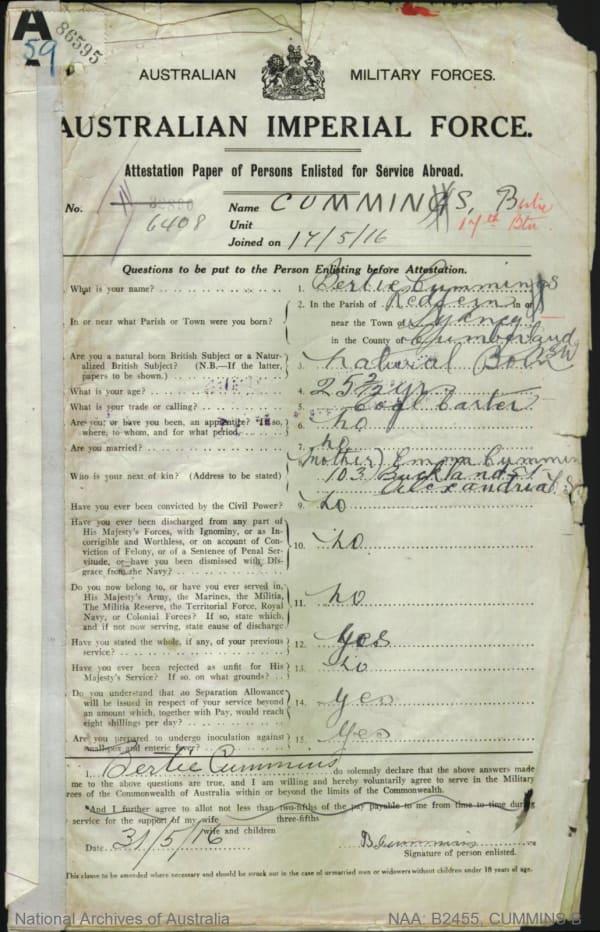 A
59
86595
AUSTRALIAN MILITARY FORCES.
AUSTRALIAN IMPERIAL FORCE.
Attestation Paper of Persons Enlisted for Service Abroad.
No. 6408 Name CUMMINS, Bertie
Unit 17th Btn
Joined on 17/5/16
Questions to be put to the Person Enlisting before Attestation.
What is your name? 1. Bertie Cummings
In or near what Parish or Town were you born? 2. In the Parish of Redfern in or
near the Town of Sydney
in the County of Cumberland
Are you a natural born British Subject or a Natu-
ralized British Subject? (N.B.—If the latter,
papers to be shown.) 3. Natural Born
What is your age? 4. 25 yr
What is your trade or calling? 5. Carter
Are you, or have you been, an apprentice? If so,
where, to whom, and for what period. 6. no
Are you married? 7. no
Who is your next of kin? (Address to be stated) (Mother) Emma Cummin
103 Buckland St
Alexandria
Have you ever been convicted by the Civil Power? 9. no
Have you ever been discharged from any part of
His Majesty's Forces, with Ignominy, or as In-
corrigible and Worthless, or on account of Con-
viction of Felony, or of a Sentence of Penal Ser-
vitude, or have you been dismissed with Dis-
grace from the Navy? 10. no
Do you now belong to, or have you ever served in,
His Majesty's Army, the Marines, the Militia,
The Militia Reserve, the Territorial Force, Royal
Navy, or Colonial Forces? If so, state which,
and if not now serving, state cause of discharge 11. no
Have you stated the whole, if any, of your previous
service? 12. yes
Have you ever been rejected as unfit for His
Majesty's Service? If so, on what grounds? 13. no
Do you understand that no Separation Allowance
will be issued in respect of your service beyond
an amount which, together with Pay, would reach
eight shillings per day? 14. yes
Are you prepared to undergo inoculation against
small pox and enteric fever? 15. yes
I, Bertie Cummins do solemnly declare that the above answers made
me to the above questions are true, and I am willing and hereby voluntarily agree to serve in the Military
rces of the Commonwealth of Australia within or beyond the limits of the Commonwealth.
*And I further agree to allot not less than two-fifths of the pay payable to me from time to time during
three-fifths
service for the support of my wife
wife and children
Date 31/5/16 B Cummins
Signature of person enlisted.
This clause to be amended where necessary and should be struck out in the case of unmarried men or widowers without children under 18 years of age.
National Archives of Australia NAA: B2455, CUMMINS B